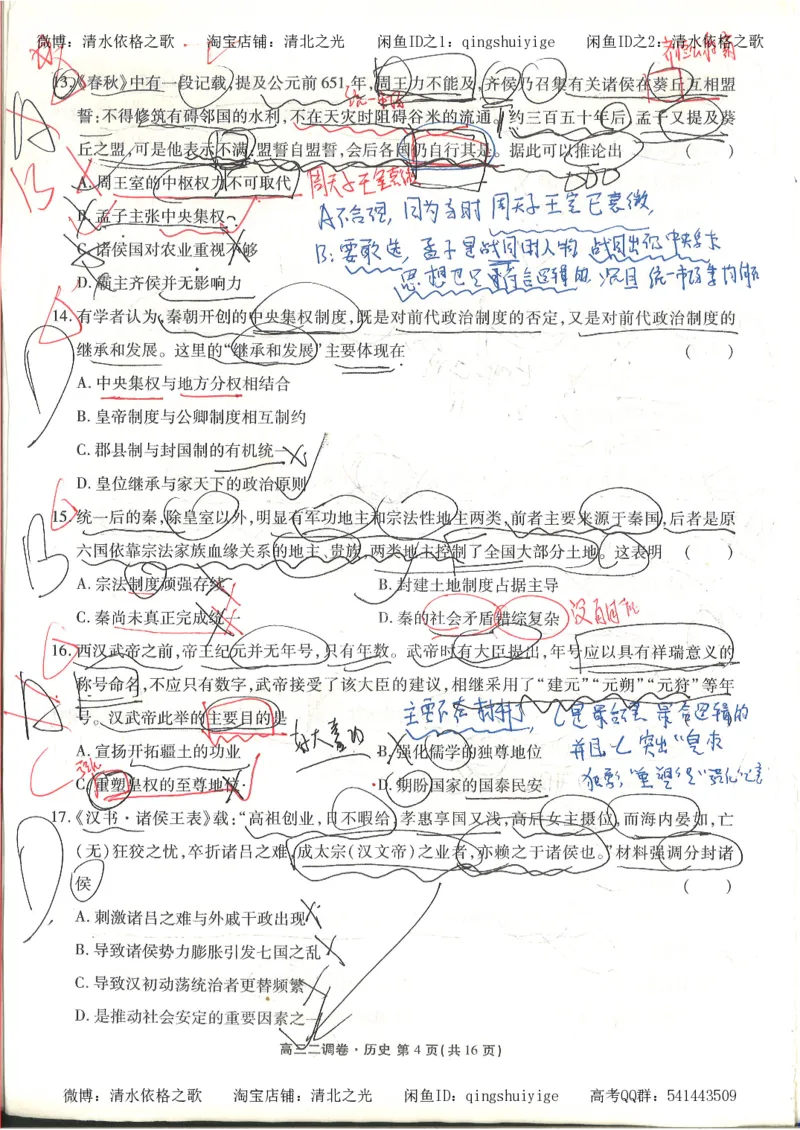 微博：清水依格之歌 淘宝店铺：清北之光 闲鱼ID之1：qingshuiyige 闲鱼ID之2：清水依格之歌
13.《春秋》中有一段记载,提及公元前651年,周王力不能及,齐侯乃召集有关诸侯在葵丘互相盟
统一市场
誓:不得修筑有碍邻国的水利,不在天灾时阻碍谷米的流通。约三百五十年后,孟子又提及葵
丘之盟,可是他表示不满,盟誓自盟誓,会后各国仍自行其是。据此可以推论出 ( )
A
B
A. 周王室的中枢权力不可取代
周天子王室衰微
B. 孟子主张中央集权
A不合理,因为当时周天子王室已衰微,
C. 诸侯国对农业重视不够
B:要敢选,孟子是战国时人物 战国出现中央集权
D. 霸主齐侯并无影响力
思想也是符合逻辑的
14. 有学者认为,秦朝开创的中央集权制度,既是对前代政治制度的否定,又是对前代政治制度的
继承和发展。这里的“继承和发展”主要体现在 ( )
D
A. 中央集权与地方分权相结合
B. 皇帝制度与公卿制度相互制约
C. 郡县制与封国制的有机统一
D. 皇位继承与家天下的政治原则
15. 统一后的秦,除皇室以外,明显有军功地主和宗法性地主两类,前者主要来源于秦国,后者是原
六国依靠宗法家族血缘关系的地主、贵族,两类地主控制了全国大部分土地。这表明 ( )
B
A. 宗法制度顽强存续 B. 封建土地制度占据主导
C. 秦尚未真正完成统一 D. 秦的社会矛盾错综复杂
16. 西汉武帝之前,帝王纪元并无年号,只有年数。武帝时有大臣提出,年号应以具有祥瑞意义的
称号命名,不应只有数字,武帝接受了该大臣的建议,相继采用了“建元”“元朔”“元狩”等年
号。汉武帝此举的主要目的是
A
C
A. 宣扬开拓疆土的功业 B. 强化儒学的独尊地位
强化
C. 重塑皇权的至尊地位 D. 期盼国家的国泰民安
17.《汉书·诸侯王表》载:“高祖创业,日不暇给,孝惠享国又浅,高后女主摄位,而海内晏如,亡
(无)狂狡之忧,卒折诸吕之难,成太宗(汉文帝)之业者,亦赖之于诸侯也。”材料强调分封诸
侯 ( )
D
A. 刺激诸吕之难与外戚干政出现
B. 导致诸侯势力膨胀引发七国之乱
C. 导致汉初动荡统治者更替频繁
D. 是推动社会安定的重要因素之一
高三二调卷·历史 第4页(共16页)
微博：清水依格之歌 淘宝店铺：清北之光 闲鱼ID：qingshuiyige 高考QQ群：541443509